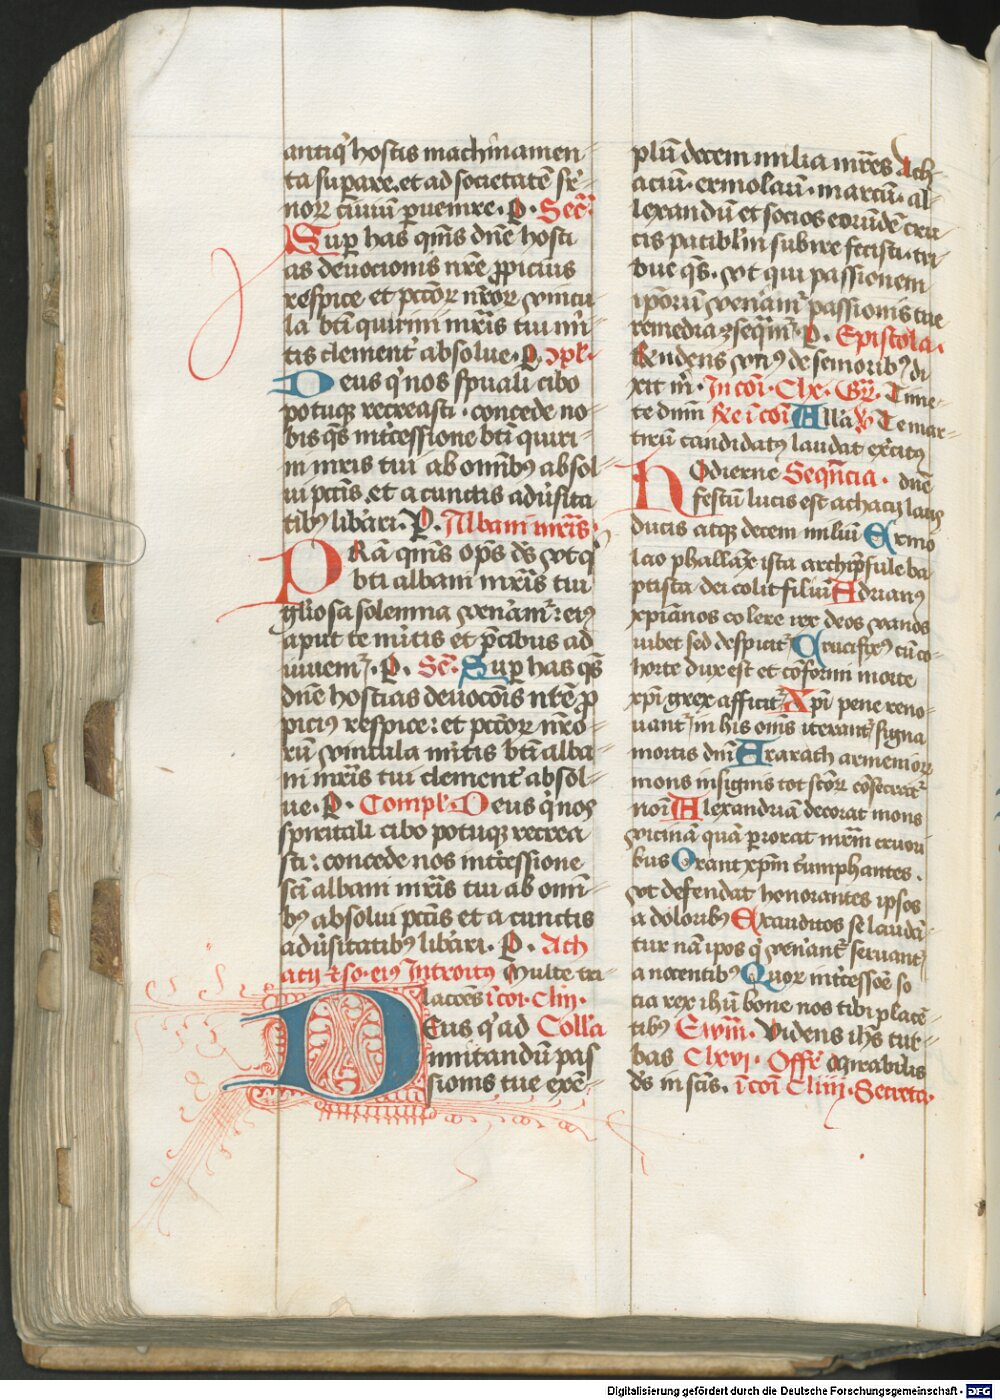 antiqͥ hostis machinamen-
ta supare. et ad societatē sr̄-
norꝝ ciuiū ꝑuenire. P. Secͬ.
Sup has qm̄s dn̄e hosti
as deuocionis nr̄e ꝓpicius
respice et pctōꝝ nr̄oꝝ vincu
la bt̄i quirini mr̄is tui mͥ-
tis clement᷒ absolue. P. ꝯpl̄.
Deus qͥ nos spūali cibo
potuqꝫ recreasti. concede no-
bis qs̄ mͥt̄cessione bt̄i quiri-
ni mr̄is tui ab omībꝰ absol-
ui pctīs et a cunctis aduͥsita
tibꝰ libari. P. Albani mr̄is.
PRā qm̄s op̄s ds̄ vt qͥ
bt̄i albani mr̄is tui
gl̄iosa solemnia venāmͬ: eiꝰ
aput te mͥtis et p̄cibus ad
iuuemͬ. P. Sec̄. Sup has qs̄
dn̄e hostias deuocōis nr̄e ꝓ
piciꝰ respice: et pctōꝝ nr̄o-
rū vincula mͥtis bt̄i alba
ni mr̄is tui clement᷒ absol-
ue. P. Compl̄. Deus qͥ nos
spiritali cibo potuqꝫ recrea
sti: concede nos mͥt̄cessione
sc̄i albani mr̄is tui ab omī-
bꝰ absolui pctīs et a cunctis
aduͥsitatibꝰ libari. P. Ach
acij ⁊ so. eiꝰ Introitꝰ Multe tri
lacoēs ī coī. Cliij.
DEus qͥ ad Coll̄a
imitandū pas
sionis tue exē-
plū decem milia mr̄es Ach-
aciū. ermolaū. marciū. al-
lexandrū et socios eorūdē cru
cis patibl̄m subire fecisti. tri
bue qs̄. vt qui passionem
ip̄orū venāmͬ passionis tue
remedia ꝯseqͣmͬ. P. Epistola.
Rn̄dens vnꝰ de senioribꝰ di
xit mͥ. In coī. Clx. Gͬ. Time-
te dnm̄ Re ī coī Alla ꝟ Te mar-
tirū candidatꝰ laudat ex̄citꝰ
HOdierne Seqn̄cia. dn̄e
festū lucis est achacij laus
ducis atqꝫ decem miliū Ermo
lao phallāx ista archip̄sule ba
ptista dei colit filiū Adrianꝰ
xpīanos colere rex deos vanos
iubet sed despicitͬ Crucifixꝰ cū co-
horte dux est et cōformi morte
xpī grex afficitͬ Xpī pene reno-
uantͬ in his om̄s iterantͬ signa
mortis dn̄i Ararath armenioꝝ
mons insignis tot sc̄oꝝ cōsecratͬ
noī Alexandriā decorat mons
viciniā quā ꝑorat mr̄m cruori
bus Orant xpm̄ tͥumphantes.
vt defendat honorantes ipsos
a doloribꝰ Exauditos se laudā
tur nā ip̄os qͥ venāntͬ seruantͬ
a nocentibꝰ Quoꝝ mͥt̄cessōe so
cia rex ih̄u bone nos tibi placē
tibꝰ Ewm̄. Videns ih̄s tur-
bas Clxvi. Offr̄ Mirabilis
ds̄ in sc̄is. ī coī Cliiij. Secreta.
Digitalisierung gefördert durch die Deutsche Forschungsgemeinschaft - DFG